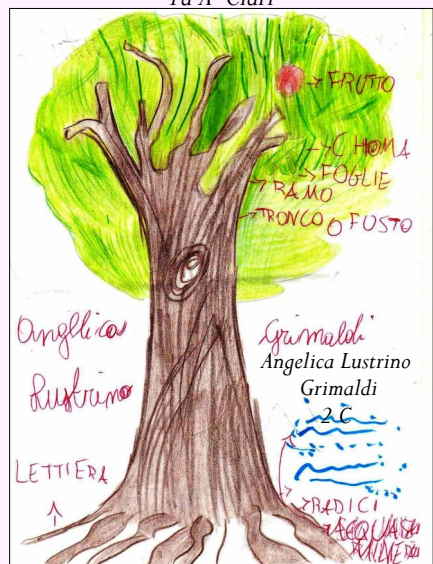 FRUTTO
CHOMA
FOGLIE
RAMO
TRONCO O FUSTO
Angelica
Grimaldi
Angelica Lustrino
Grimaldi
2 C
Lustrino
LETTIERA
RADICI
ACQUA